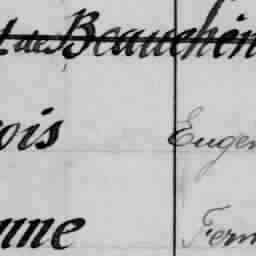 t de Beauchên
ois Eugen
nne Fern